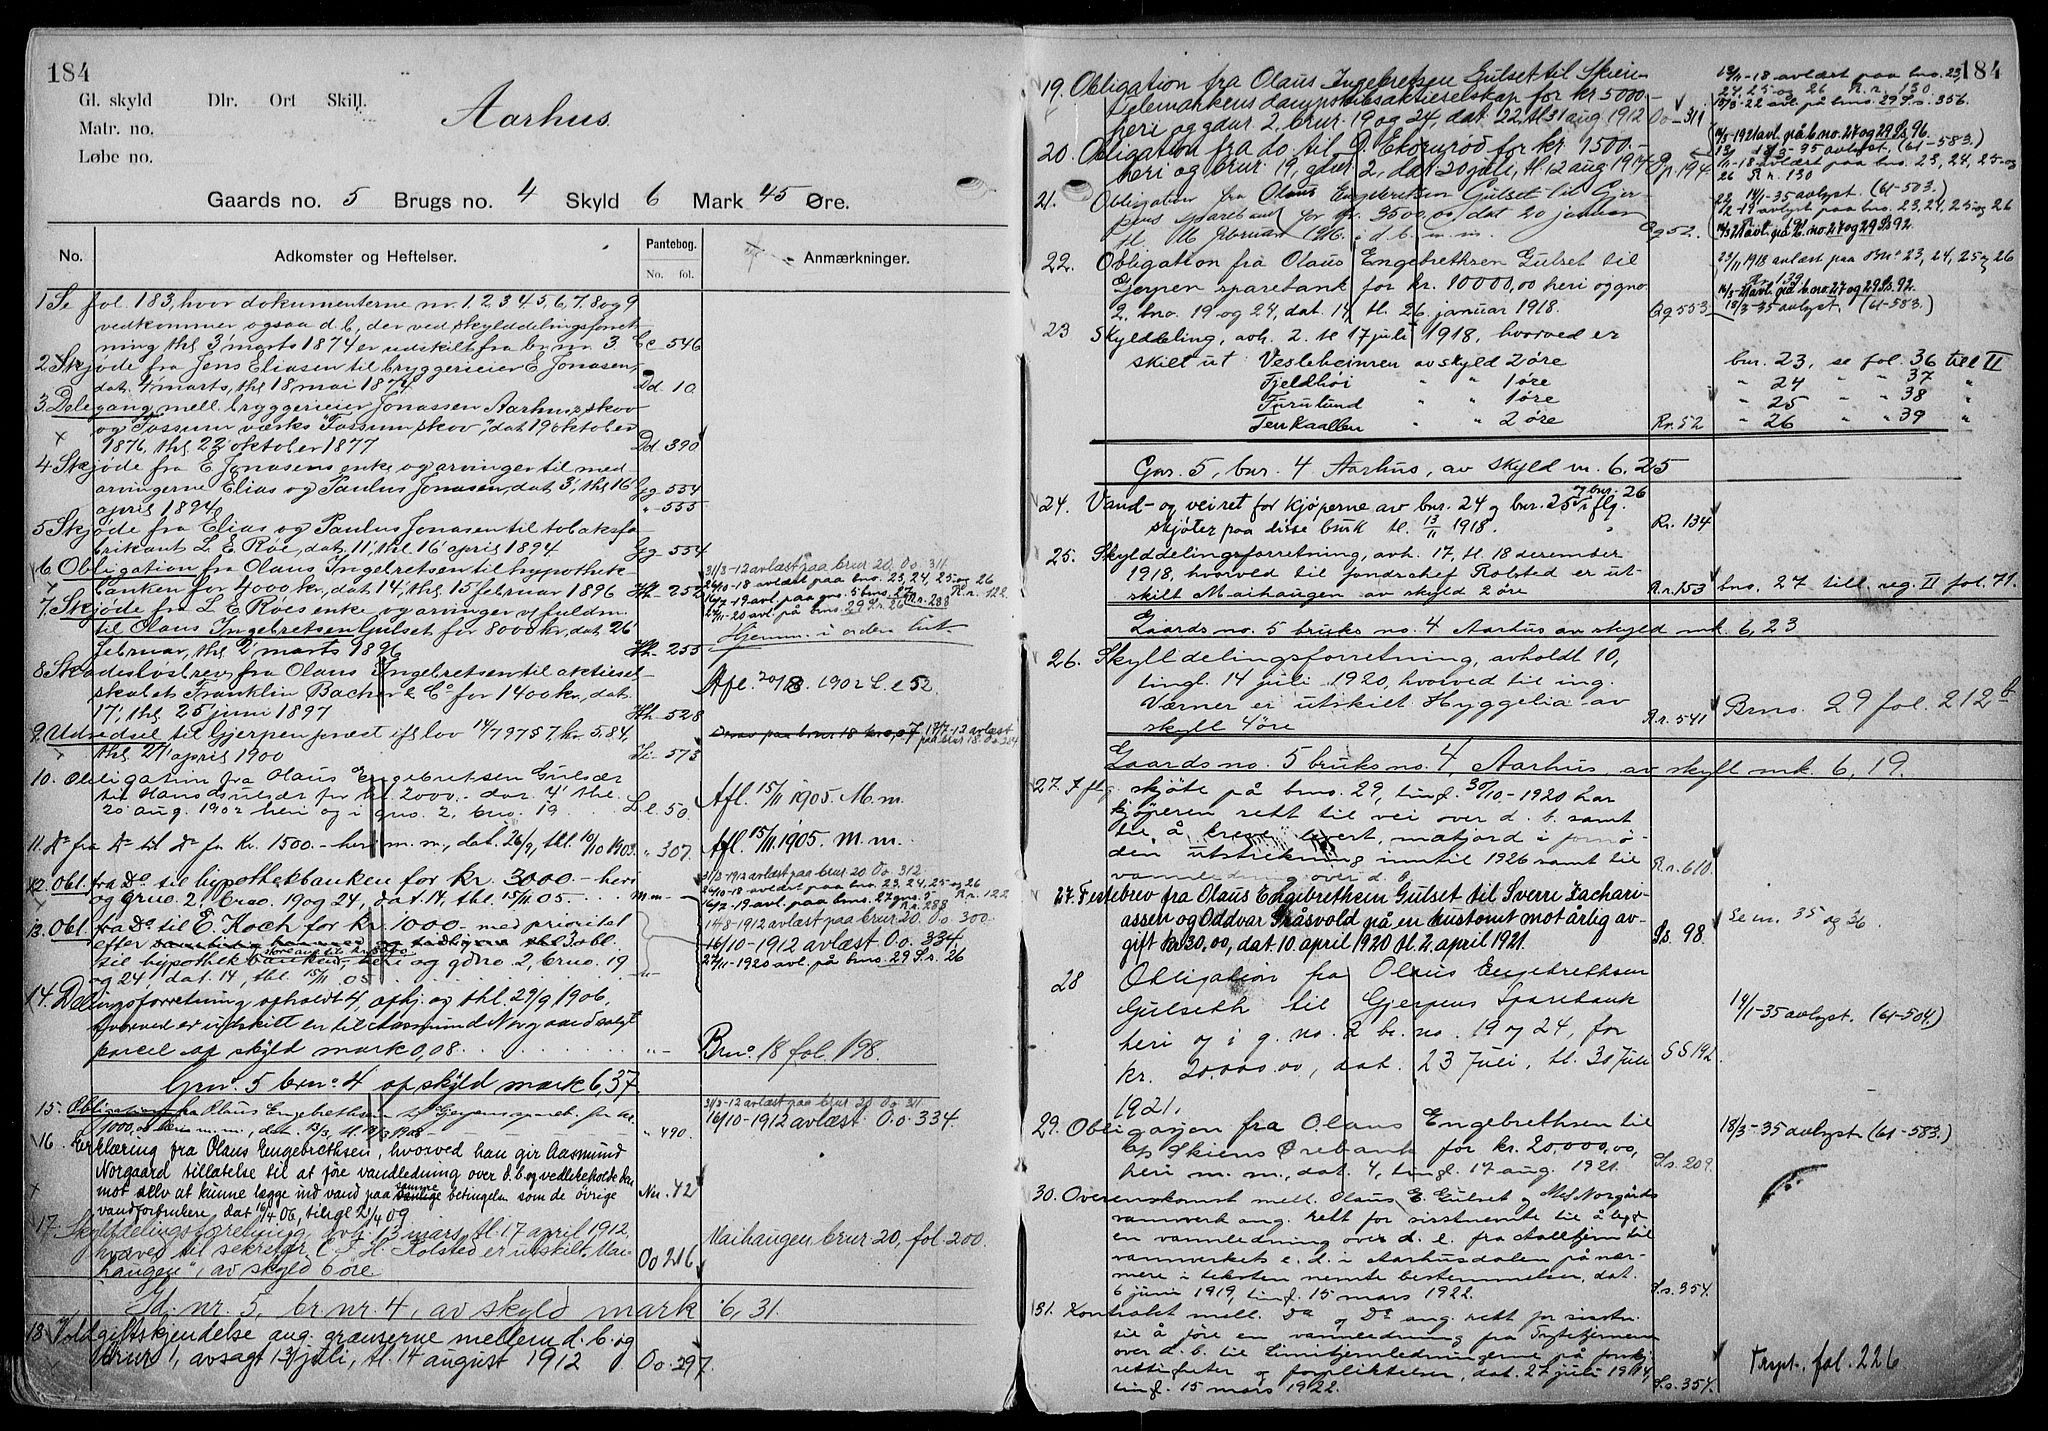 184
Gl. skyld Dlr. Ort Skill.
Matr. no.
Løbe no.
Aarhus.
Gaards no. 5 Brugs no. 4 Skyld 6 Mark 45 Øre.
No. Adkomster og Heftelser. Pantebog. No. fol. Anmærkninger.
1 Se fol. 183, hvor dokumenterne nr. 1, 2, 3, 4, 5, 6, 7, 8 og 9
vedkommer ogsaa d. b., der ved skylddelingsforret-
ning thl. 3 marts 1874 er udskilt fra br. nr. 3 Cc 546
2 Skjøde fra Jens Eliasen til bryggerieier E. Jonasen,
dat. 4 marts, thl. 18 mai 1874 Dd. 10.
3. Delegang mell. bryggerieier Jonassen Aarhus skov
og Fossum værks "Fossum skov", dat 19 oktober
1876, thl. 22 oktober 1877 Dd. 390
4 Skjøde fra E. Jonasens enke og arvinger til med-
arvingerne Elias og Paulus Jonasen, dat 3, thl 16 Gg 554
april 1894 " 555
5 Skjøde fra Elias og Paulus Jonasen til tobaksfa-
brikant L. E. Røe, dat. 11, thl 16 april 1894 Gg. 554
6 Obligation fra Olaus Ingebretsen til hypothek-
banken for 4000 kr, dat 14, thl 15 februar 1896 Hh. 252
31/3-12 avlæst paa brur 20. Oo 311
26/10-18 avlæst paa bno. 23, 24, 25 og 26 R.r. 122
16/7-19 avl. paa gno. 5 bno. 27 R.r. 288
27/11-20 avl. på bno. 29 S.s. 26
7. Skjøde fra L. E. Røes enke og arvinger v/ fuldm.
til Olaus Ingebretsen Gulset for 8000 kr, dat 26
februar, thl 2 marts 1896 Hh. 255
Hjemm. i orden
8 Skadesløsbrev fra Olaus Ingebretsen til aktiesel-
skabet Franklin Bache & Co for 1400 kr, dat.
17, thl 25 juni 1897 Hh. 528
Afl. 1902 L. l 52.
9. Udredsel til Gjerpen præst ifl. lov 14/7 97 57 kr. 5,84,
thl 27 april 1900 Ii. 573
10. Obligation fra Olaus Engebretsen Gulsær
til Hans for kr 2000.- dat. 4 thl.
20 aug. 1902 heri og i gno. 2, bno. 19 L. l. 50.
Afl. 15/11 1905. M. m.
11. Do fra Do til Do for Kr. 1500.- heri m. m., dat. 26/9, thl. 10/10 1903. " 307.
Afl. 15/11 1905. M. m.
12. Obl. fra Do. til hypothekbanken for kr. 3000.- heri
og gno. 2, bno. 19 og 24, dat. 14, thl. 15/11 05. M m -
31/3-1912 avlæst paa brur 20 Oo 312
26/10-18 avlæst paa bno. 23, 24, 25 og 26 R.r. 122
16/7-19 avl. paa bno. 27 gno. 5 R.r. 288
13. Obl. fra Do til E. Koch for kr. 1000.- med prioritet
efter obl.
til hypothekbanken, heri og gdno 2, brno. 19
og 24, dat. 14, thl. 15/11 05. "-
14/8-1912 avlæst paa brur 20. Oo 300.
16/10-1912 avlæst Oo. 334.
27/11-1920 avl. på bno. 29 S.s. 26
14. Delingsforretning afholdt 4, afhj. og thl. 29/9 1906,
hvorved er udskilt en til Aasmund Norgaard solgt
parcel af skyld mark 0,08. "-
Brno. 18 fol. 198.
Grno. 5 brno. 4 af skyld mark 6,37
15. Obligation fra Olaus Engebrethsen til Gjerpens spareb. for kr.
1000,00 heri m. m., dat. 13/3, thl. 1908 " 490.
31/3-12 avlæst paa brur 20 Oo 311
16/10-1912 avlæst. Oo 334.
16. Erklæring fra Olaus Engebrethsen, hvorved han gir Aasmund
Norgaard tillatelse til at føre vandledning over d. b. og vedlikeholde den
mot selv at kunne lægge ind vand paa samme betingelser som de øvrige
vandforbrukere, dat 16/4 06, thgl 21/4 09 Nn. 42
17. Skylddelingsforretning, avh. 13 mars, tl. 17 april 1912,
hvorved til sekretær C. F. H. Rolsted er utskilt "Mai-
haugen", av skyld 6 øre Oo 216
Maihaugen brur 20, fol 200.
Gd. nr. 5, br. nr. 4, av skyld mark 6,31.
18. Voldgiftskjendelse ang. grænserne mellem d. b. og
brur 1, avsagt 13 juli, tl. 14 august 1912 Oo 297.
184
19. Obligation fra Olaus Ingebretsen Gulset til Skien-
Telemarkens dampskibsaktieselskap for kr 5000.-
heri og gdnr. 2, brur. 19 og 24, dat. 22, tl 31 aug. 1912 Oo 319
20. Obligation fra do. til J. Ekornrød for kr 1500.-
heri og brur 19, gdnr 2, dat 20 juli, tl. 12 aug. 1914 Qp. 194
21. Obligation fra Olaus Engebretsen Gulset til Gjer-
pens sparebank for kr. 3500,00, dat 20 januar
tl. 16 februar 1916. i d. b. m. m. Qg 52.
22 14/1-35 avlyst. (61-503.)
22. Obligation fra Olaus Engebrethsen Gulset til
Gjerpen sparebank for kr. 10000,00 heri og gno
2, bno. 19 og 24, dat. 14, tl. 26. januar 1918. Qg 553
23/11 1918 avlæst paa bno 23, 24, 25 og 26
R.r. 129
18/3-35 avlyst. (61-583.)
23 Skylddeling, avh. 2. tl 17 juli 1918, hvorved er
skilt ut Vesleheimen av skyld 2 øre bnr. 23, se fol. 36 till II
Fjeldhøi " " 1 øre " 24 " " 37 "
Furulund " " 1 øre " 25 " " 38 "
" " 2 øre R.r. 52 " 26 " " 39 "
Gnr. 5, bnr. 4 Aarhus, av skyld m. 6,25
24. Vand- og veiret for kjøperne av bnr. 24 og bnr. 25 og bnr. 26 iflg.
skjøter paa disse bruk tl. 13/11 1918. R.r. 134
25. Skylddelingsforretning, avh. 17, tl. 18 desember
1918, hvorved til fondschef Rolsted er ut-
skilt Maihaugen av skyld 2 øre R.r. 153 bns. 27 till. reg. II fol. 71.
Gaards no. 5 bruks no. 4 Aarhus av skyld mk. 6,23
26. Skylddelingsforretning, avholdt 10,
tingl. 14 juli 1920, hvorved til ing.
Værner er utskilt Hyggelia av
skyll 4 øre R.r. 541 Brns. 29 fol 212 b
Gaards no. 5 bruks no. 4, Aarhus, av skyll mk. 6,19.
27. Iflg. skjøte på bns. 29, tingl. 30/10-1920 har
kjøperen rett til vei over d. b. samt
til å kreve levert matjord i fornø-
den utstrekning inntil 1926 samt til
vannledning over d. b. R.r. 610.
27. Festebrev fra Olaus Engebrethsen Gulset til Sverre Zachari-
assen og Oddvar Gråsvold på en hustomt mot årlig av-
gift kr. 30,00, dat. 10. april 1920 tl. 2. april 1921. Ss. 98.
Se nr. 35 og 36.
28 Obligation fra Olaus Engebrethsen
Gulseth til Gjerpens Sparebank
heri og i g. no. 2 br. no. 19 og 24, for
kr. 20.000.00, dat. 23 Juli, tl. 30 Juli
1921. SS 192.
14/1-35 avlyst. (61-504.)
29. Obligasjon fra Olaus Engebrethsen til
Skiens Ørebank for kr. 20,000,00,
heri m. m., dat. 4, tingl. 17 aug. 1921. S.s. 209.
18/3-35 avlyst. (61-583.)
30. Overenskomst mell. Olaus E. Gulset og Norgårds
vannverk ang. rett for sistnevnte til å legge
en vannledning over d. e. fra til
vannverkets e. d. i Aarhusdalen på nær-
mere i teksten nevnte bestemmelser, dat.
6 juni 1919, tingl. 15 mars 1922. S.s. 354.
31. Kontrakt mell. Do og Do ang. rett for sistn.
til å føre en vannledning fra
over d. b. til Limitjernledningerne på
rettigheter og forpliktelser, dat. 27 juli 1914,
tingl. 15 mars 1922. S.s. 354.
fol. 226